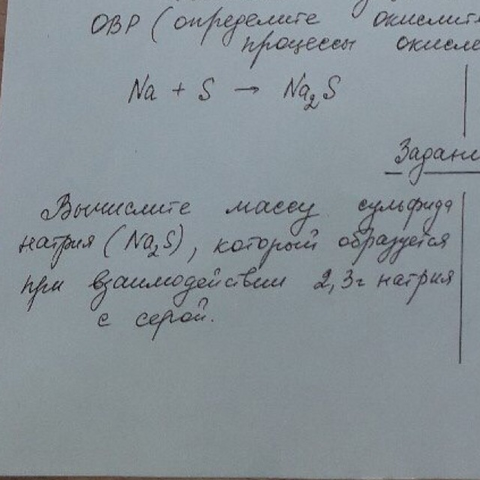 ОВР (определите
процессы
Na + S → Na2S
Вычислите массу сульфида
натрия (Na2S), который образуется
при взаимодействии 2,3г натрия
с серой.